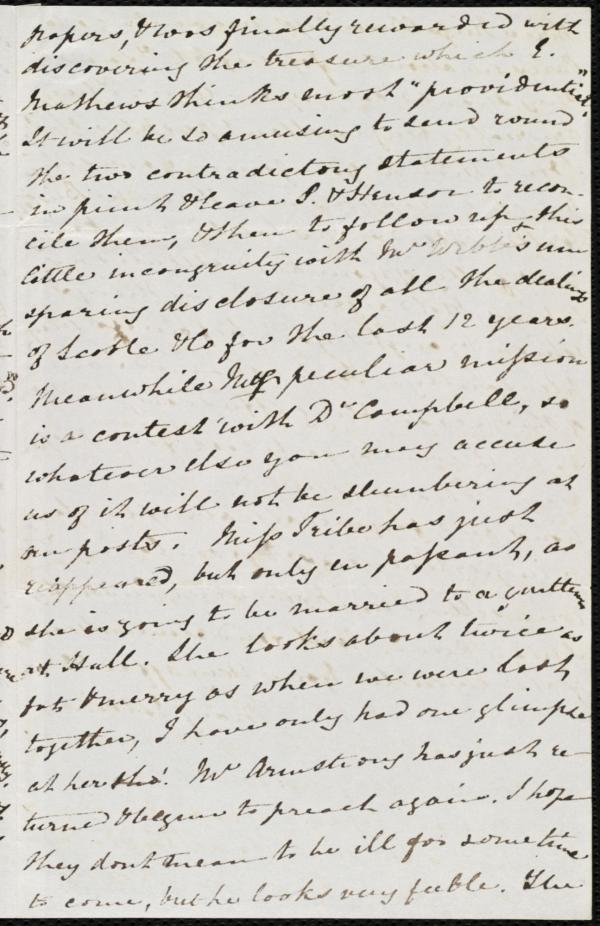 papers, & was finally rewarded with
discovering the treasure which E.
Mathews thinks most "providential".
It will be so amusing to send round
the two contradictory statements
in print & leave S. & Hensor to recon-
cile them, & then to follow up this
little incongruity with Mr Webb's un
sparing disclosure of all the dealings
of Scoble & Co for the last 12 years.
Meanwhile peculiar mission
is a contest with Dr Campbell, so
whatever else you may accuse
us of it will not be slumbering at
our posts. Miss Tribe has just
reappeared, but only en passant, as
she is going to be married to a gentleman
at Hull. She looks about twice as
fat & merry as when we were last
together, I have only had one glimpse
at her tho'. Mr Armstrong has just re-
turned & begun to preach again. I hope
they dont mean to be ill for some time
to come, but he looks very feeble. The